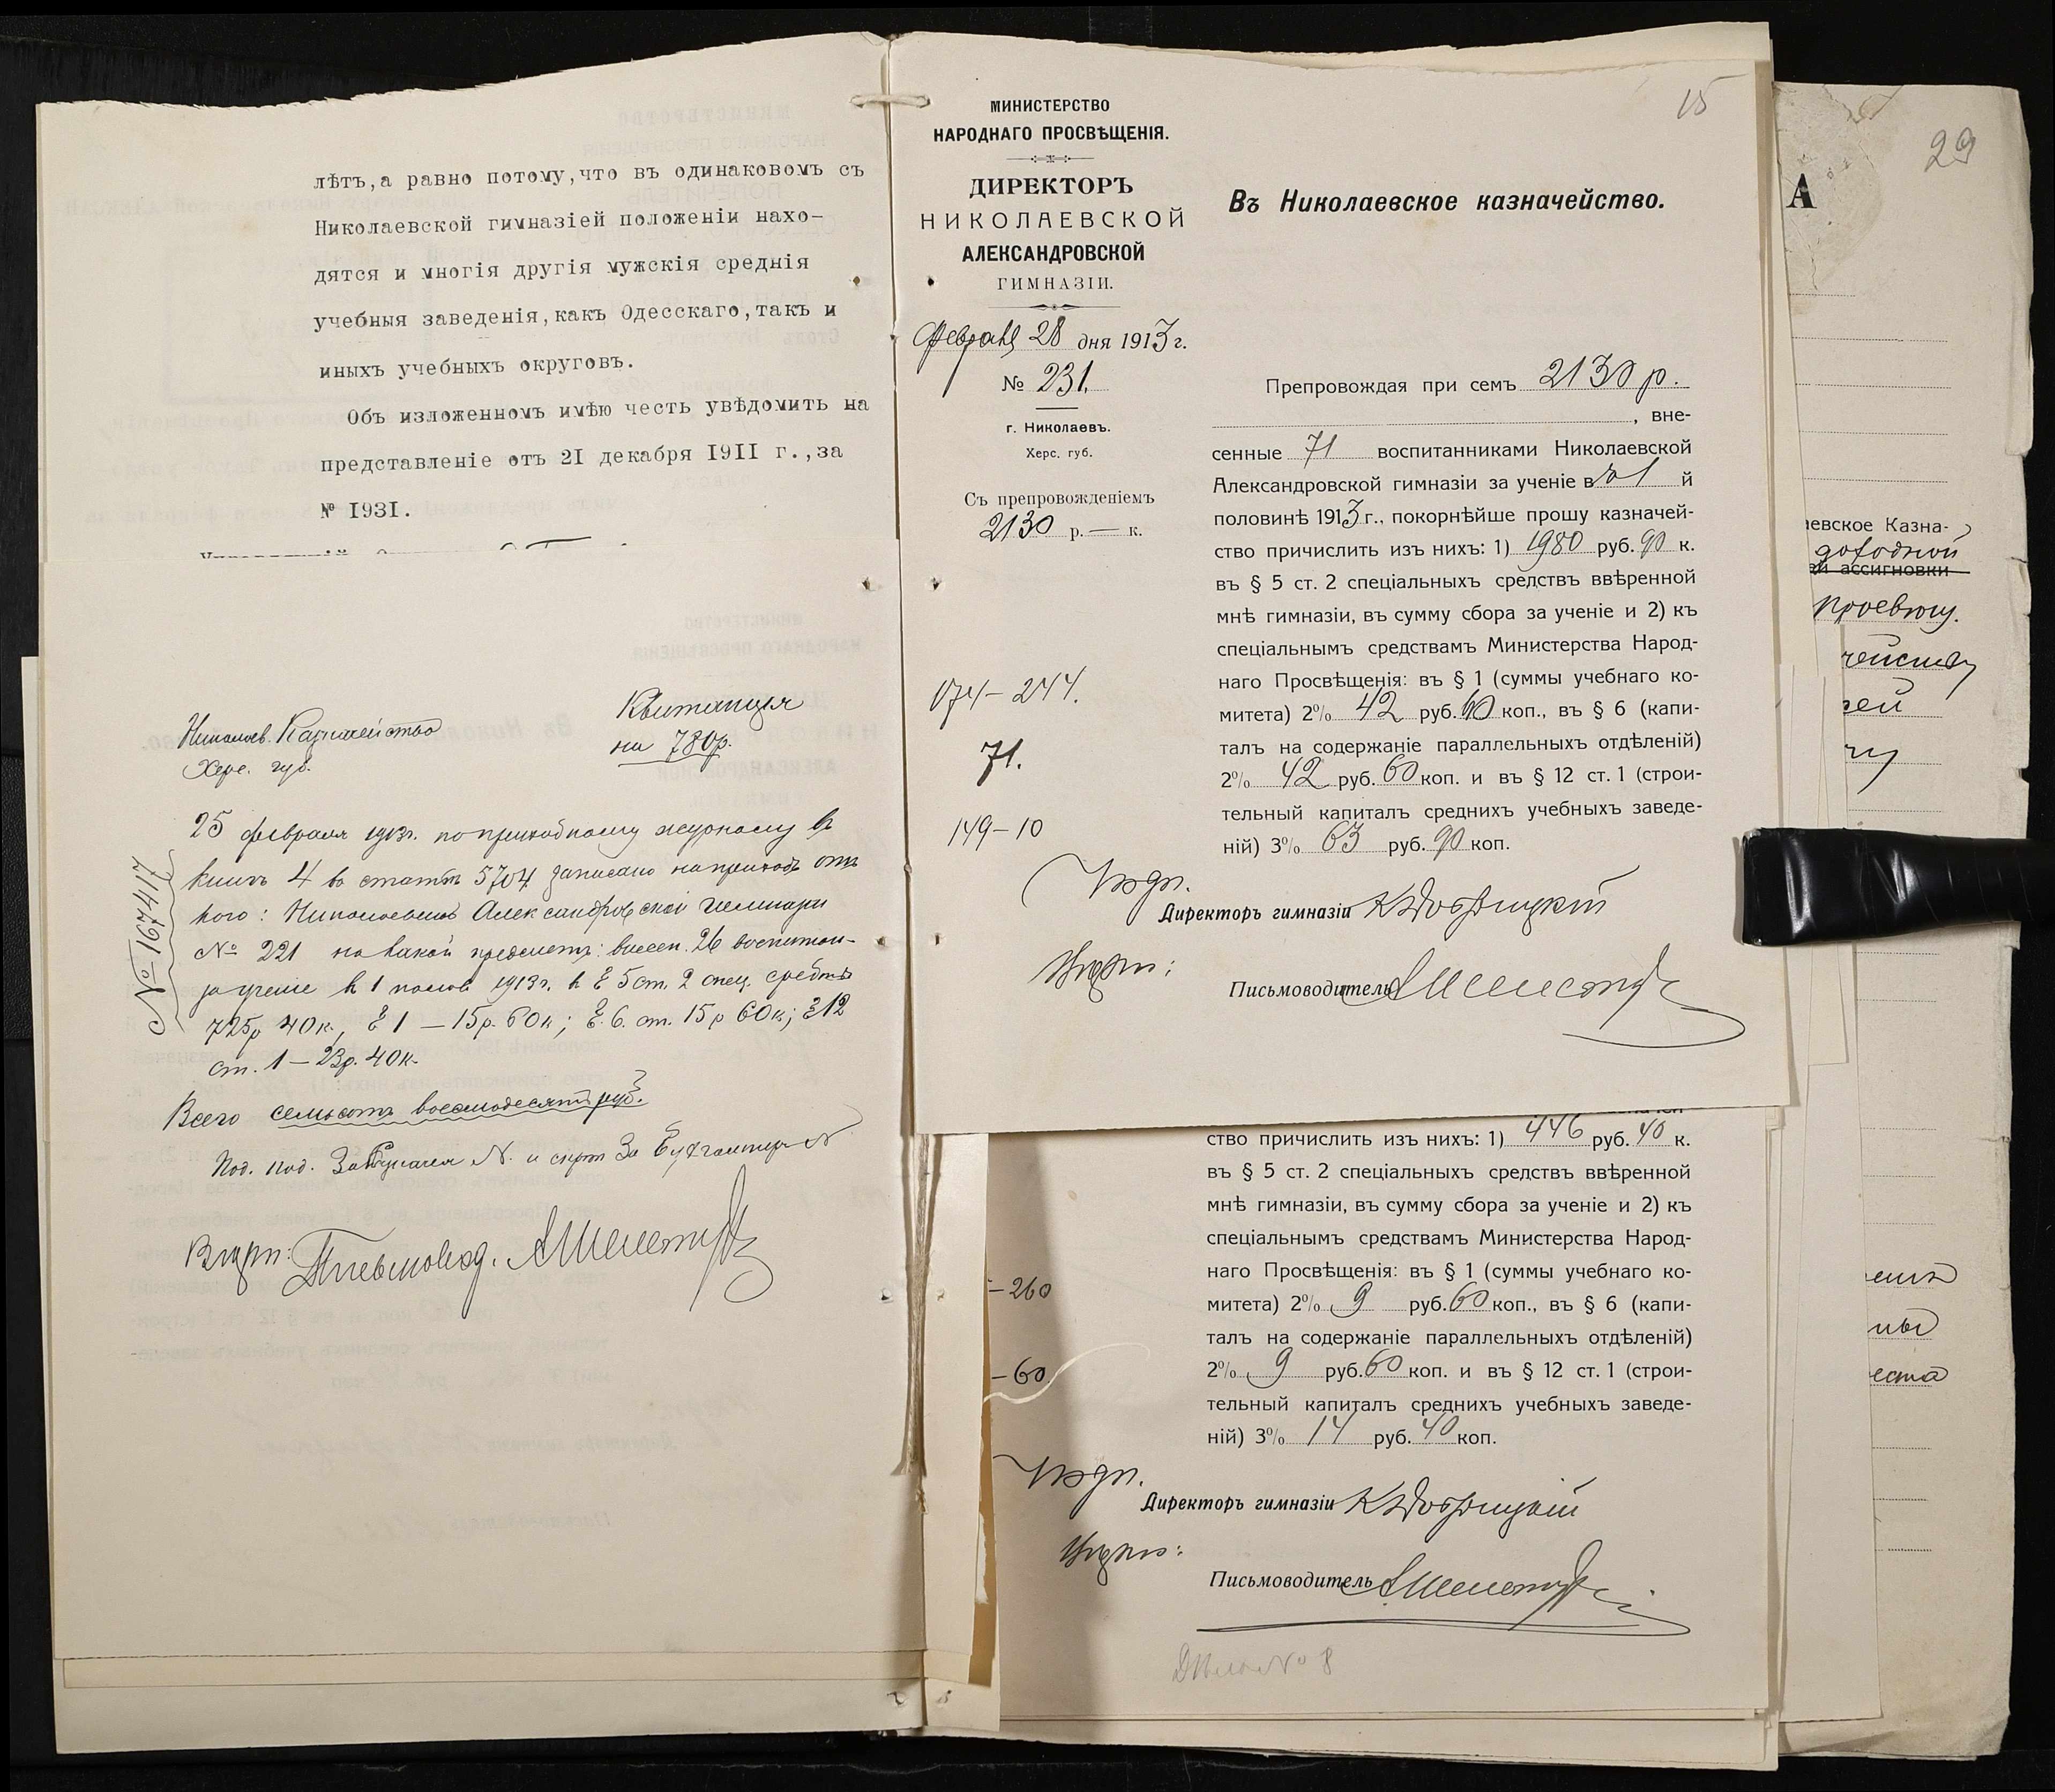 лѣтъ,а равно потому,что въ одинаковомъ съ
Николаевской гимназіей положеніи нахо-
дятся и многія другія мужскія среднія
учебныя заведенія,какъ Одесскаго,такъ и
иныхъ учебныхъ округовъ.
Объ изложенномъ имѣю честь увѣдомить на
представленіе отъ 2I декабря I9II г.,за
№ I93I.
Николаев. Казначейство
Херс. губ.
Квитанция
на 780р.
№ 167417
25 февраля 1913г. по приходному журналу в
книгѣ 4 во статьѣ 5704 записано на приходъ отъ
кого: Николаевской Александровской гимназии
№ 221 на какой предметъ: внесен. 26 воспитан-
за учение в 1 полов 1913г. в § 5 ст. 2 спец. средства
725р 40к., § 1 — 15р. 60к; §. 6. ст. 15р 60к; § 12
ст. 1 — 23р. 40к.
Всего семьсотъ восемьдесятъ руб.
Под. под. Казначея N. и скрѣп За Бухгалтера N
Вѣрн: Письмовод.
15
МИНИСТЕРСТВО
НАРОДНАГО ПРОСВѢЩЕНІЯ.
ДИРЕКТОРЪ
НИКОЛАЕВСКОЙ
АЛЕКСАНДРОВСКОЙ
ГИМНАЗІИ.
Февраля 28 дня 1913 г.
№ 231.
г. Николаевъ.
Херс. губ.
Съ препровожденіемъ
2130 р. — к.
174 – 244.
71.
149 – 10
Въ Николаевское казначейство.
Препровождая при семъ 2130 р.
, вне-
сенные 71 воспитанниками Николаевской
Александровской гимназіи за ученіе въ 1 й
половинѣ 1913 г., покорнѣйше прошу казначей-
ство причислить изъ нихъ: 1) 1980 руб. 90 к.
въ § 5 ст. 2 спеціальныхъ средствъ ввѣренной
мнѣ гимназіи, въ сумму сбора за ученіе и 2) къ
спеціальнымъ средствамъ Министерства Народ-
наго Просвѣщенія: въ § 1 (суммы учебнаго ко-
митета) 2% 42 руб. 60 коп., въ § 6 (капи-
талъ на содержаніе параллельныхъ отдѣленій)
2% 42 руб. 60 коп. и въ § 12 ст. 1 (строи-
тельный капиталъ среднихъ учебныхъ заведе-
ній) 3% 63 руб. 90 коп.
Подп.
Директоръ гимназіи
Вѣрно:
Письмоводитель
ство причислить изъ нихъ: 1) 446 руб. 40 к.
въ § 5 ст. 2 спеціальныхъ средствъ ввѣренной
мнѣ гимназіи, въ сумму сбора за ученіе и 2) къ
спеціальнымъ средствамъ Министерства Народ-
наго Просвѣщенія: въ § 1 (суммы учебнаго ко-
– 260
митета) 2% 9 руб. 60 коп., въ § 6 (капи-
талъ на содержаніе параллельныхъ отдѣленій)
– 60
2% 9 руб. 60 коп. и въ § 12 ст. 1 (строи-
тельный капиталъ среднихъ учебныхъ заведе-
ній) 3% 14 руб. 40 коп.
Подп.
Директоръ гимназіи
Вѣрно:
Письмоводитель
Дѣло № 8
29
А
левское Казна-
доходной
ей ассигновки